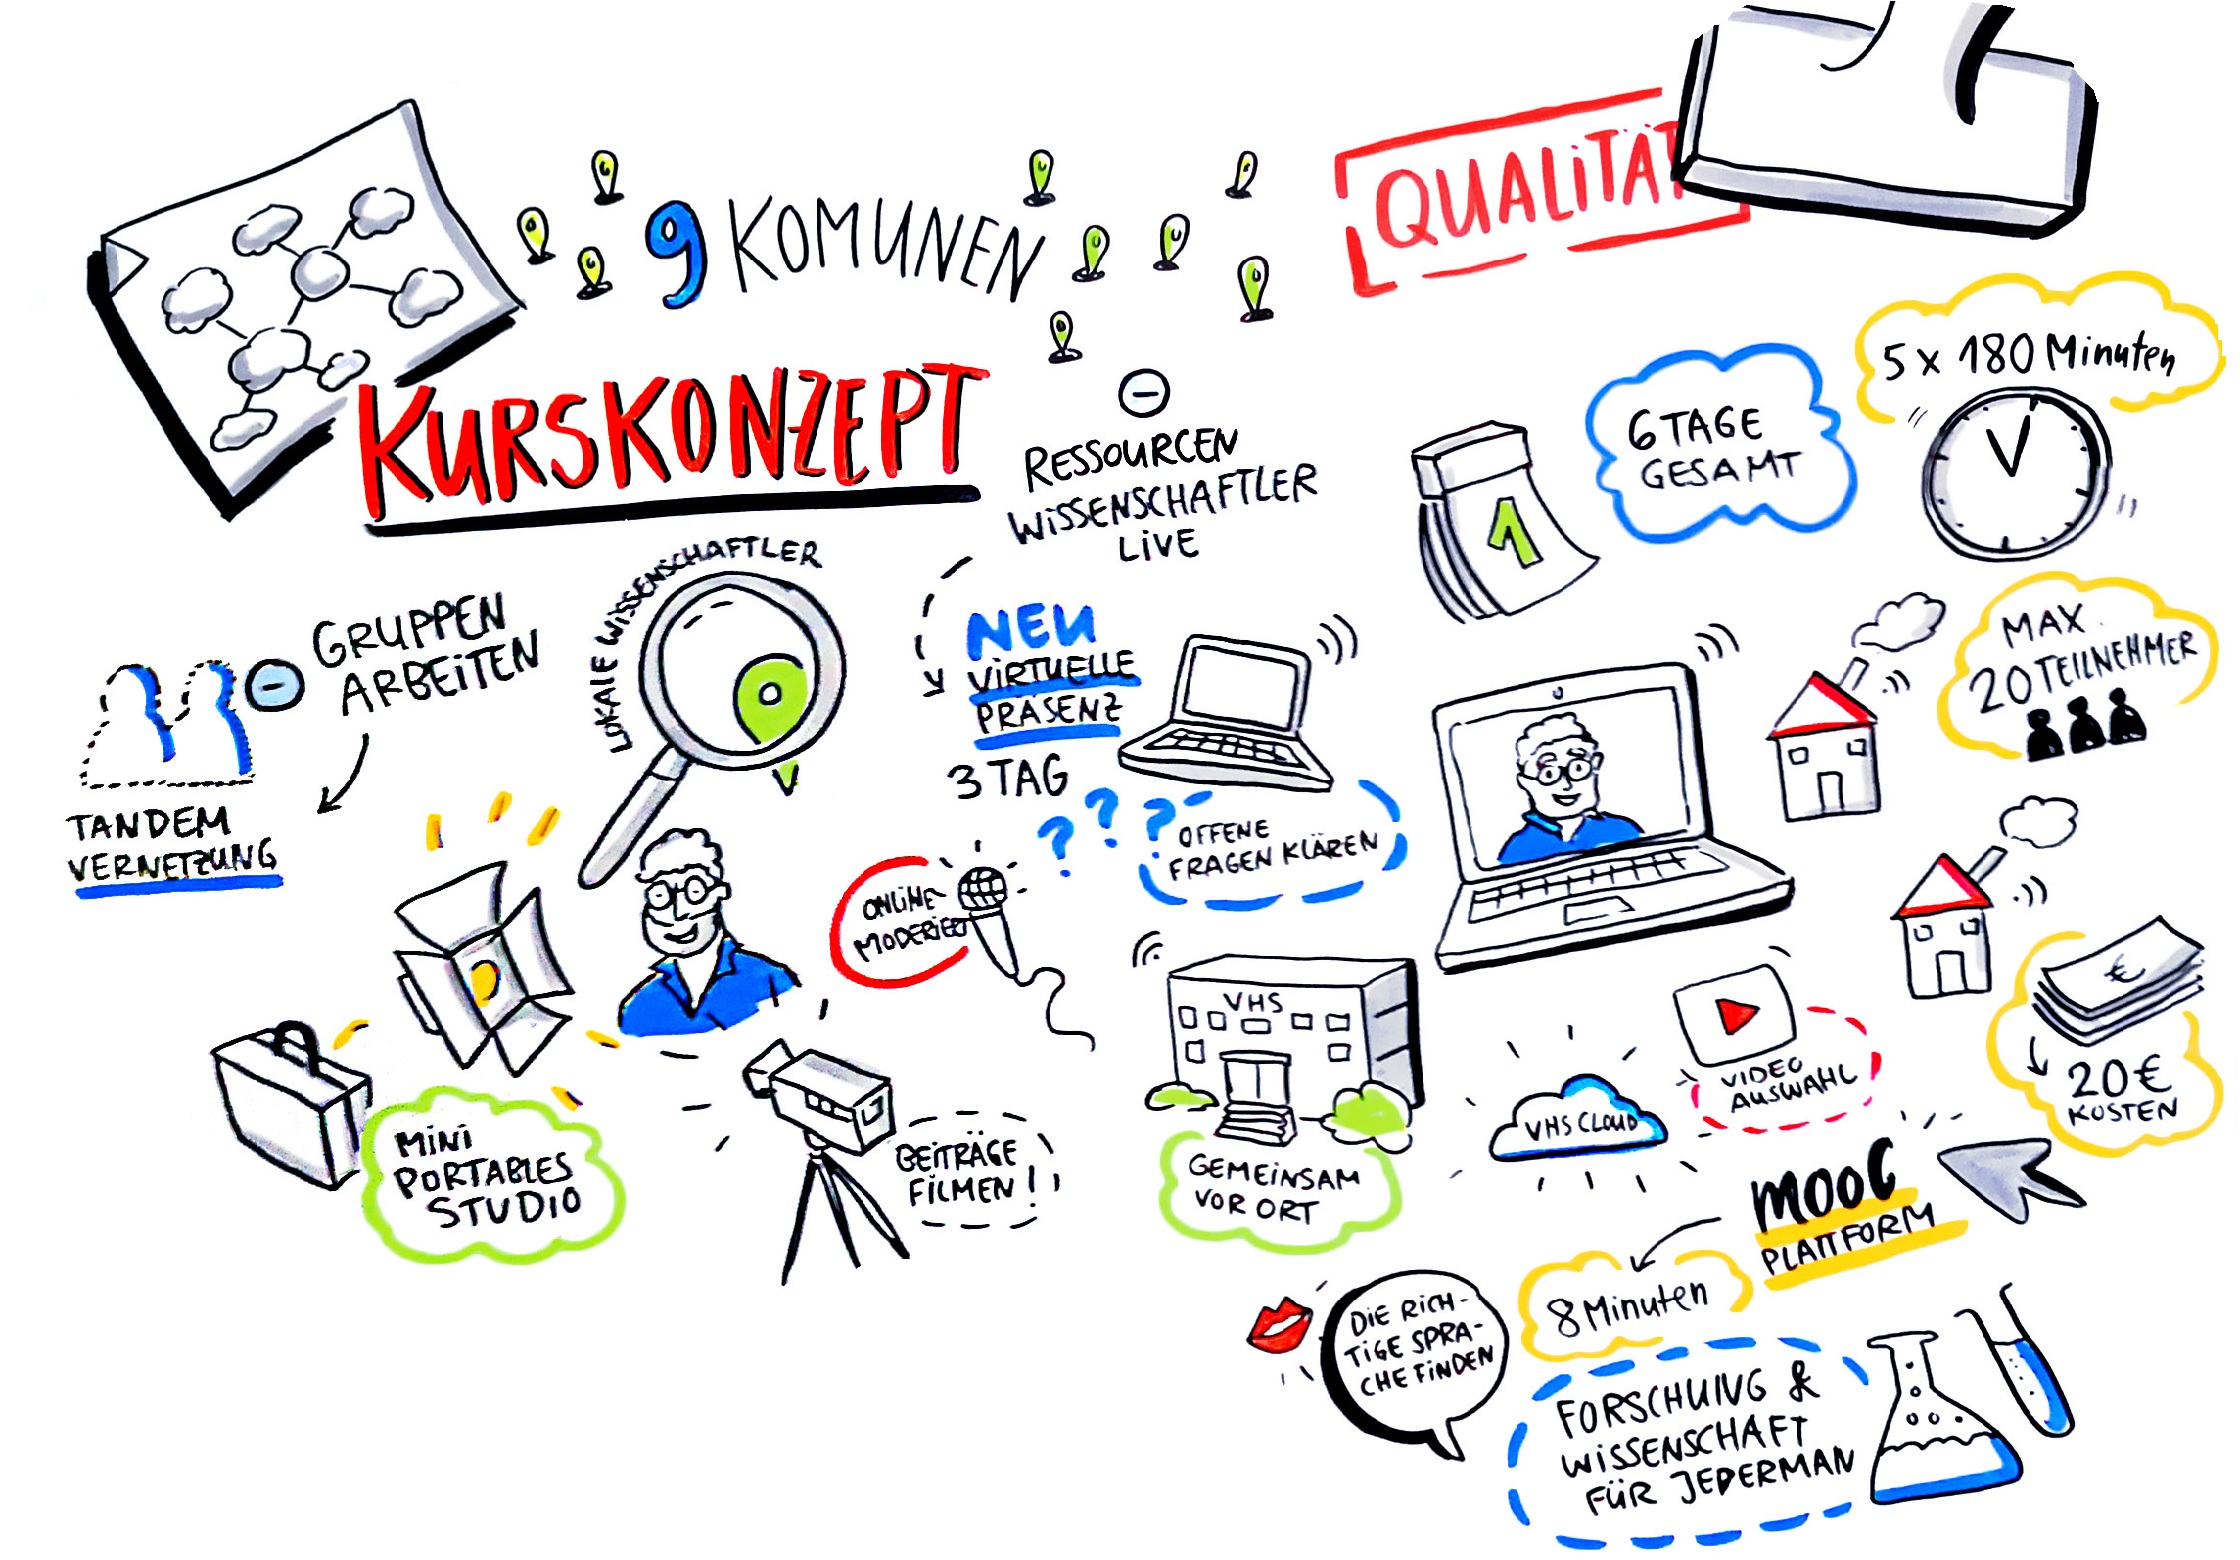 9 KOMUNEN
QUALITÄT
KURSKONZEPT
RESSOURCEN
WISSENSCHAFTLER
LIVE
1
6 TAGE
GESAMT
5 x 180 Minuten
MAX.
20 TEILNEHMER
GRUPPEN
ARBEITEN
TANDEM
VERNETZUNG
LOKALE WISSENSCHAFTLER
NEU
VIRTUELLE
PRÄSENZ
3 TAG
???
OFFENE
FRAGEN KLÄREN
ONLINE-
MODERIERT
MINI
PORTABLES
STUDIO
BEITRÄGE
FILMEN!
VHS
GEMEINSAM
VOR ORT
VHS CLOUD
VIDEO
AUSWAHL
€
20€
KOSTEN
MOOC
PLATTFORM
8 Minuten
DIE RICH-
TIGE SPRA-
CHE FINDEN
FORSCHUNG &
WISSENSCHAFT
FÜR JEDERMAN